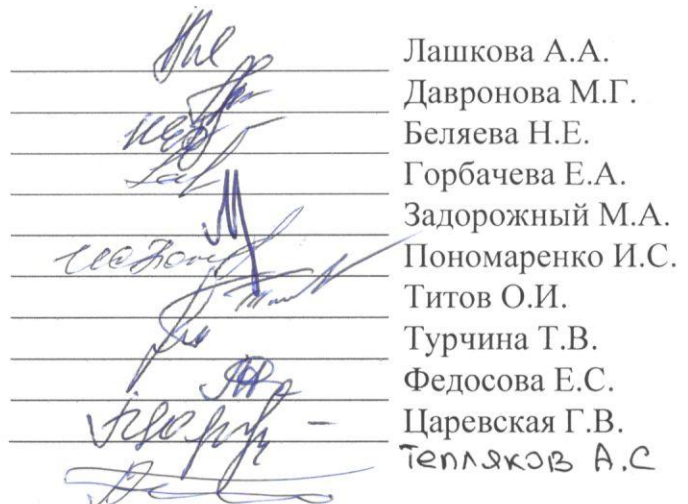 Лашкова А.А.
Давронова М.Г.
Беляева Н.Е.
Горбачева Е.А.
Задорожный М.А.
Пономаренко И.С.
Титов О.И.
Турчина Т.В.
Федосова Е.С.
Царевская Г.В.
Тепляков А.С